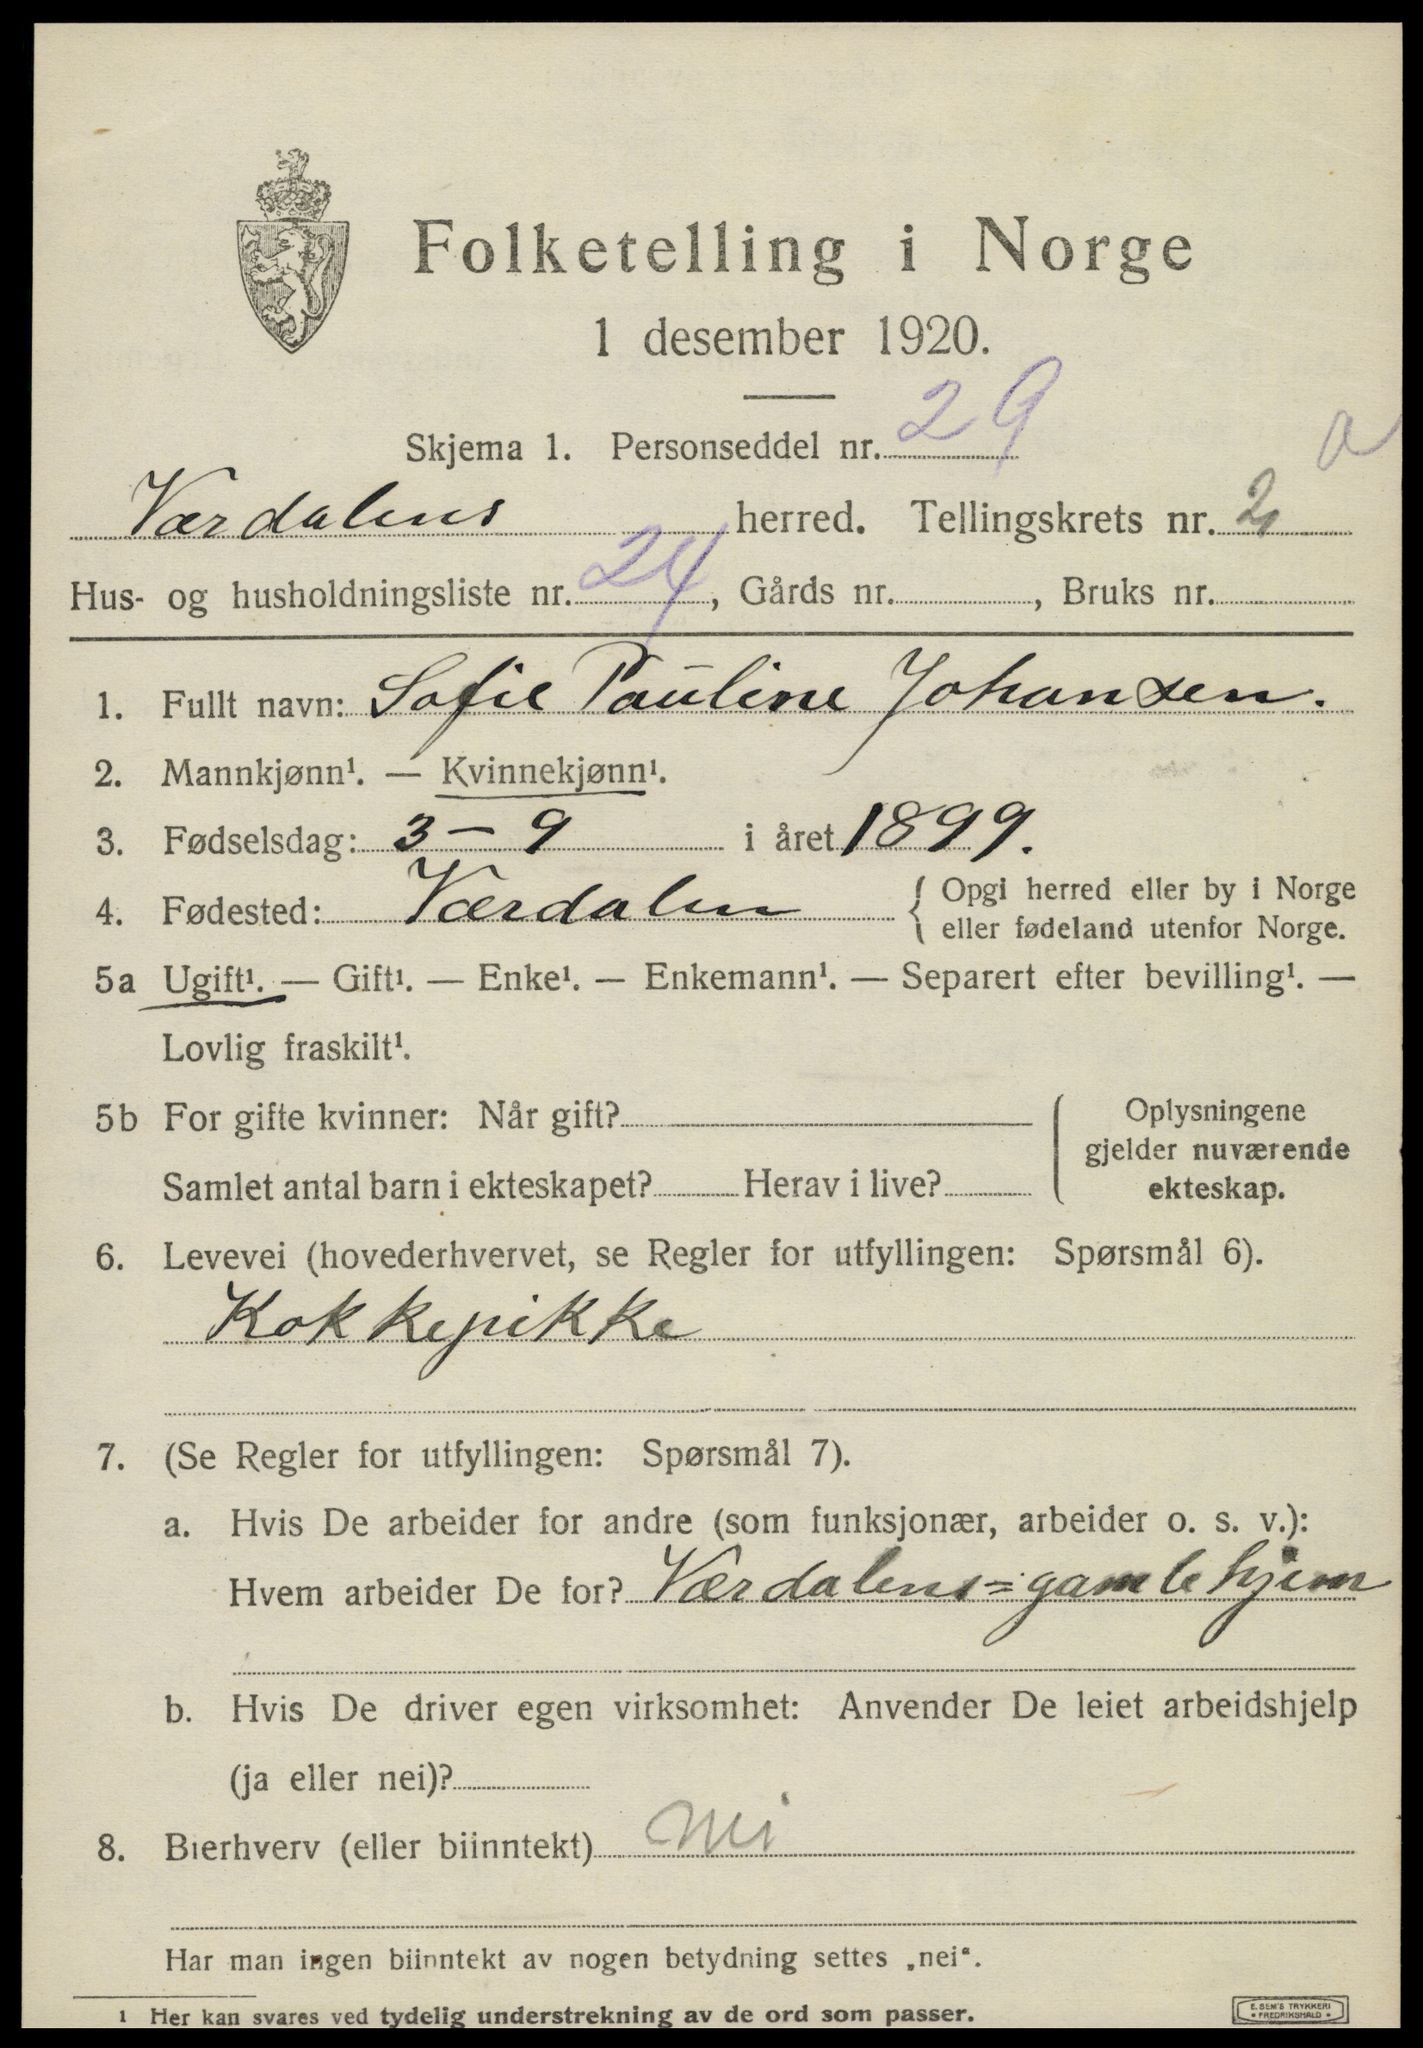 Folketelling i Norge
1 desember 1920.
Skjema 1. Personseddel nr. 29 a
Værdalens herred. Tellingskrets nr. 2
Hus- og husholdningsliste nr. 24, Gårds nr. , Bruks nr.
1. Fullt navn: Sofie Pauline Johansen.
2. Mannkjønn¹. — Kvinnekjønn¹.
3. Fødselsdag: 3-9 i året 1899.
4. Fødested: Værdalen { Opgi herred eller by i Norge
eller fødeland utenfor Norge.
5a Ugift¹. — Gift¹. — Enke¹. — Enkemann¹. — Separert efter bevilling¹. —
Lovlig fraskilt¹.
5b For gifte kvinner: Når gift?
Samlet antal barn i ekteskapet? Herav i live?
Oplysningene
gjelder nuværende
ekteskap.
6. Levevei (hovederhvervet, se Regler for utfyllingen: Spørsmål 6).
Kokkepikke
7. (Se Regler for utfyllingen: Spørsmål 7).
a. Hvis De arbeider for andre (som funksjonær, arbeider o. s. v.):
Hvem arbeider De for? Værdalens=gamlehjem
b. Hvis De driver egen virksomhet: Anvender De leiet arbeidshjelp
(ja eller nei)?
8. Bierhverv (eller biinntekt) nei
Har man ingen biinntekt av nogen betydning settes „nei“.
1 Her kan svares ved tydelig understrekning av de ord som passer.
E. SEM'S TRYKKERI
• FREDRIKSHALD •